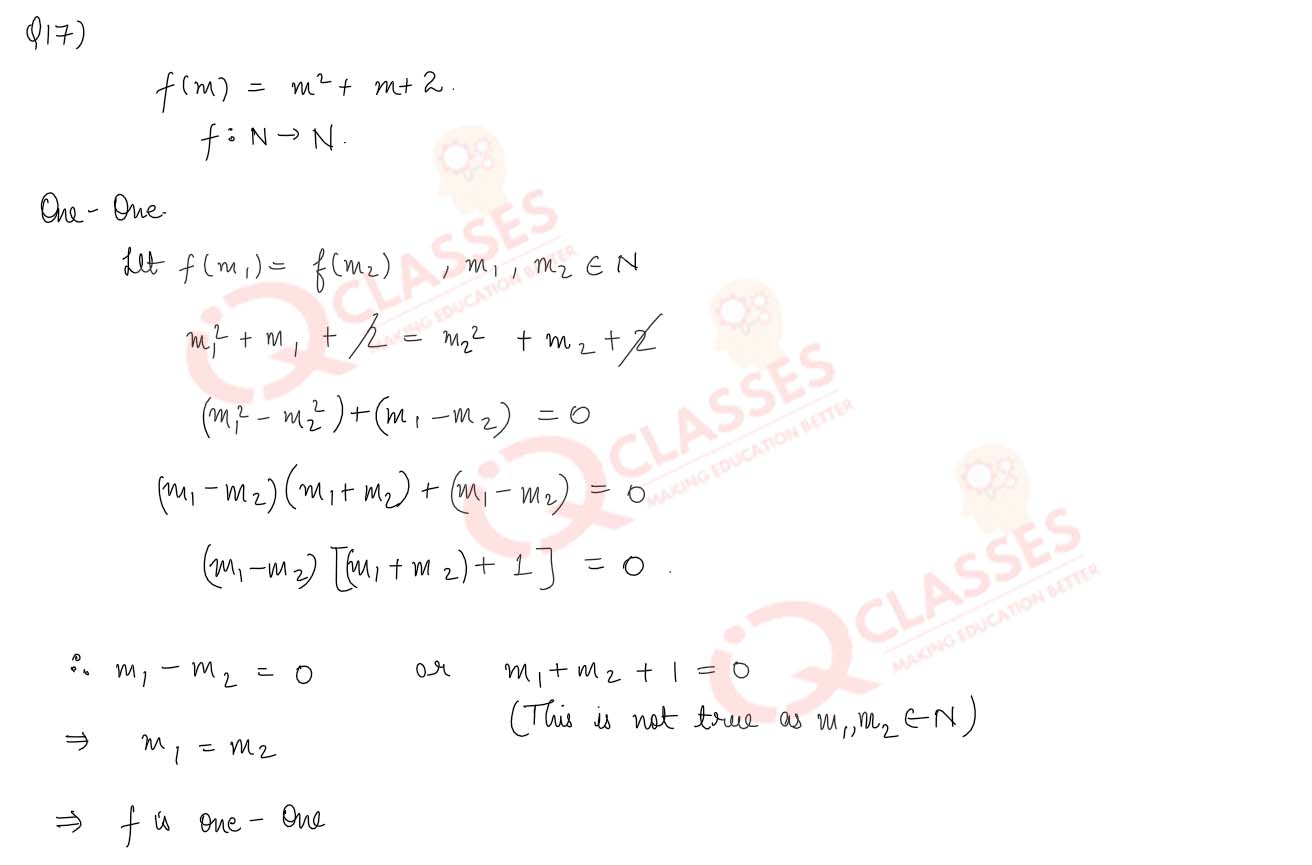 Q17)
f(m) = m² + m + 2.
f : N → N.
One - One.
Let f(m₁) = f(m₂) , m₁, m₂ ∈ N
m₁² + m₁ + 2 = m₂² + m₂ + 2
(m₁² - m₂²) + (m₁ - m₂) = 0
(m₁ - m₂)(m₁ + m₂) + (m₁ - m₂) = 0
(m₁ - m₂) [(m₁ + m₂) + 1] = 0.
∴ m₁ - m₂ = 0 or m₁ + m₂ + 1 = 0
(This is not true as m₁, m₂ ∈ N)
⇒ m₁ = m₂
⇒ f is one - One
IQ CLASSES
MAKING EDUCATION BETTER
IQ CLASSES
MAKING EDUCATION BETTER
IQ CLASSES
MAKING EDUCATION BETTER